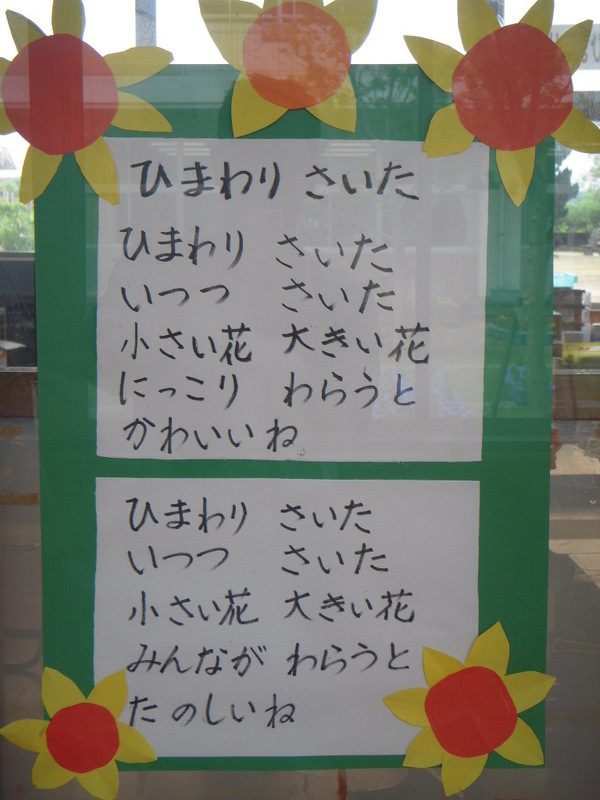 ひまわり さいた
ひまわり さいた
いつつ さいた
小さい花 大きい花
にっこり わらうと
かわいいね
ひまわり さいた
いつつ さいた
小さい花 大きい花
みんなが わらうと
たのしいね